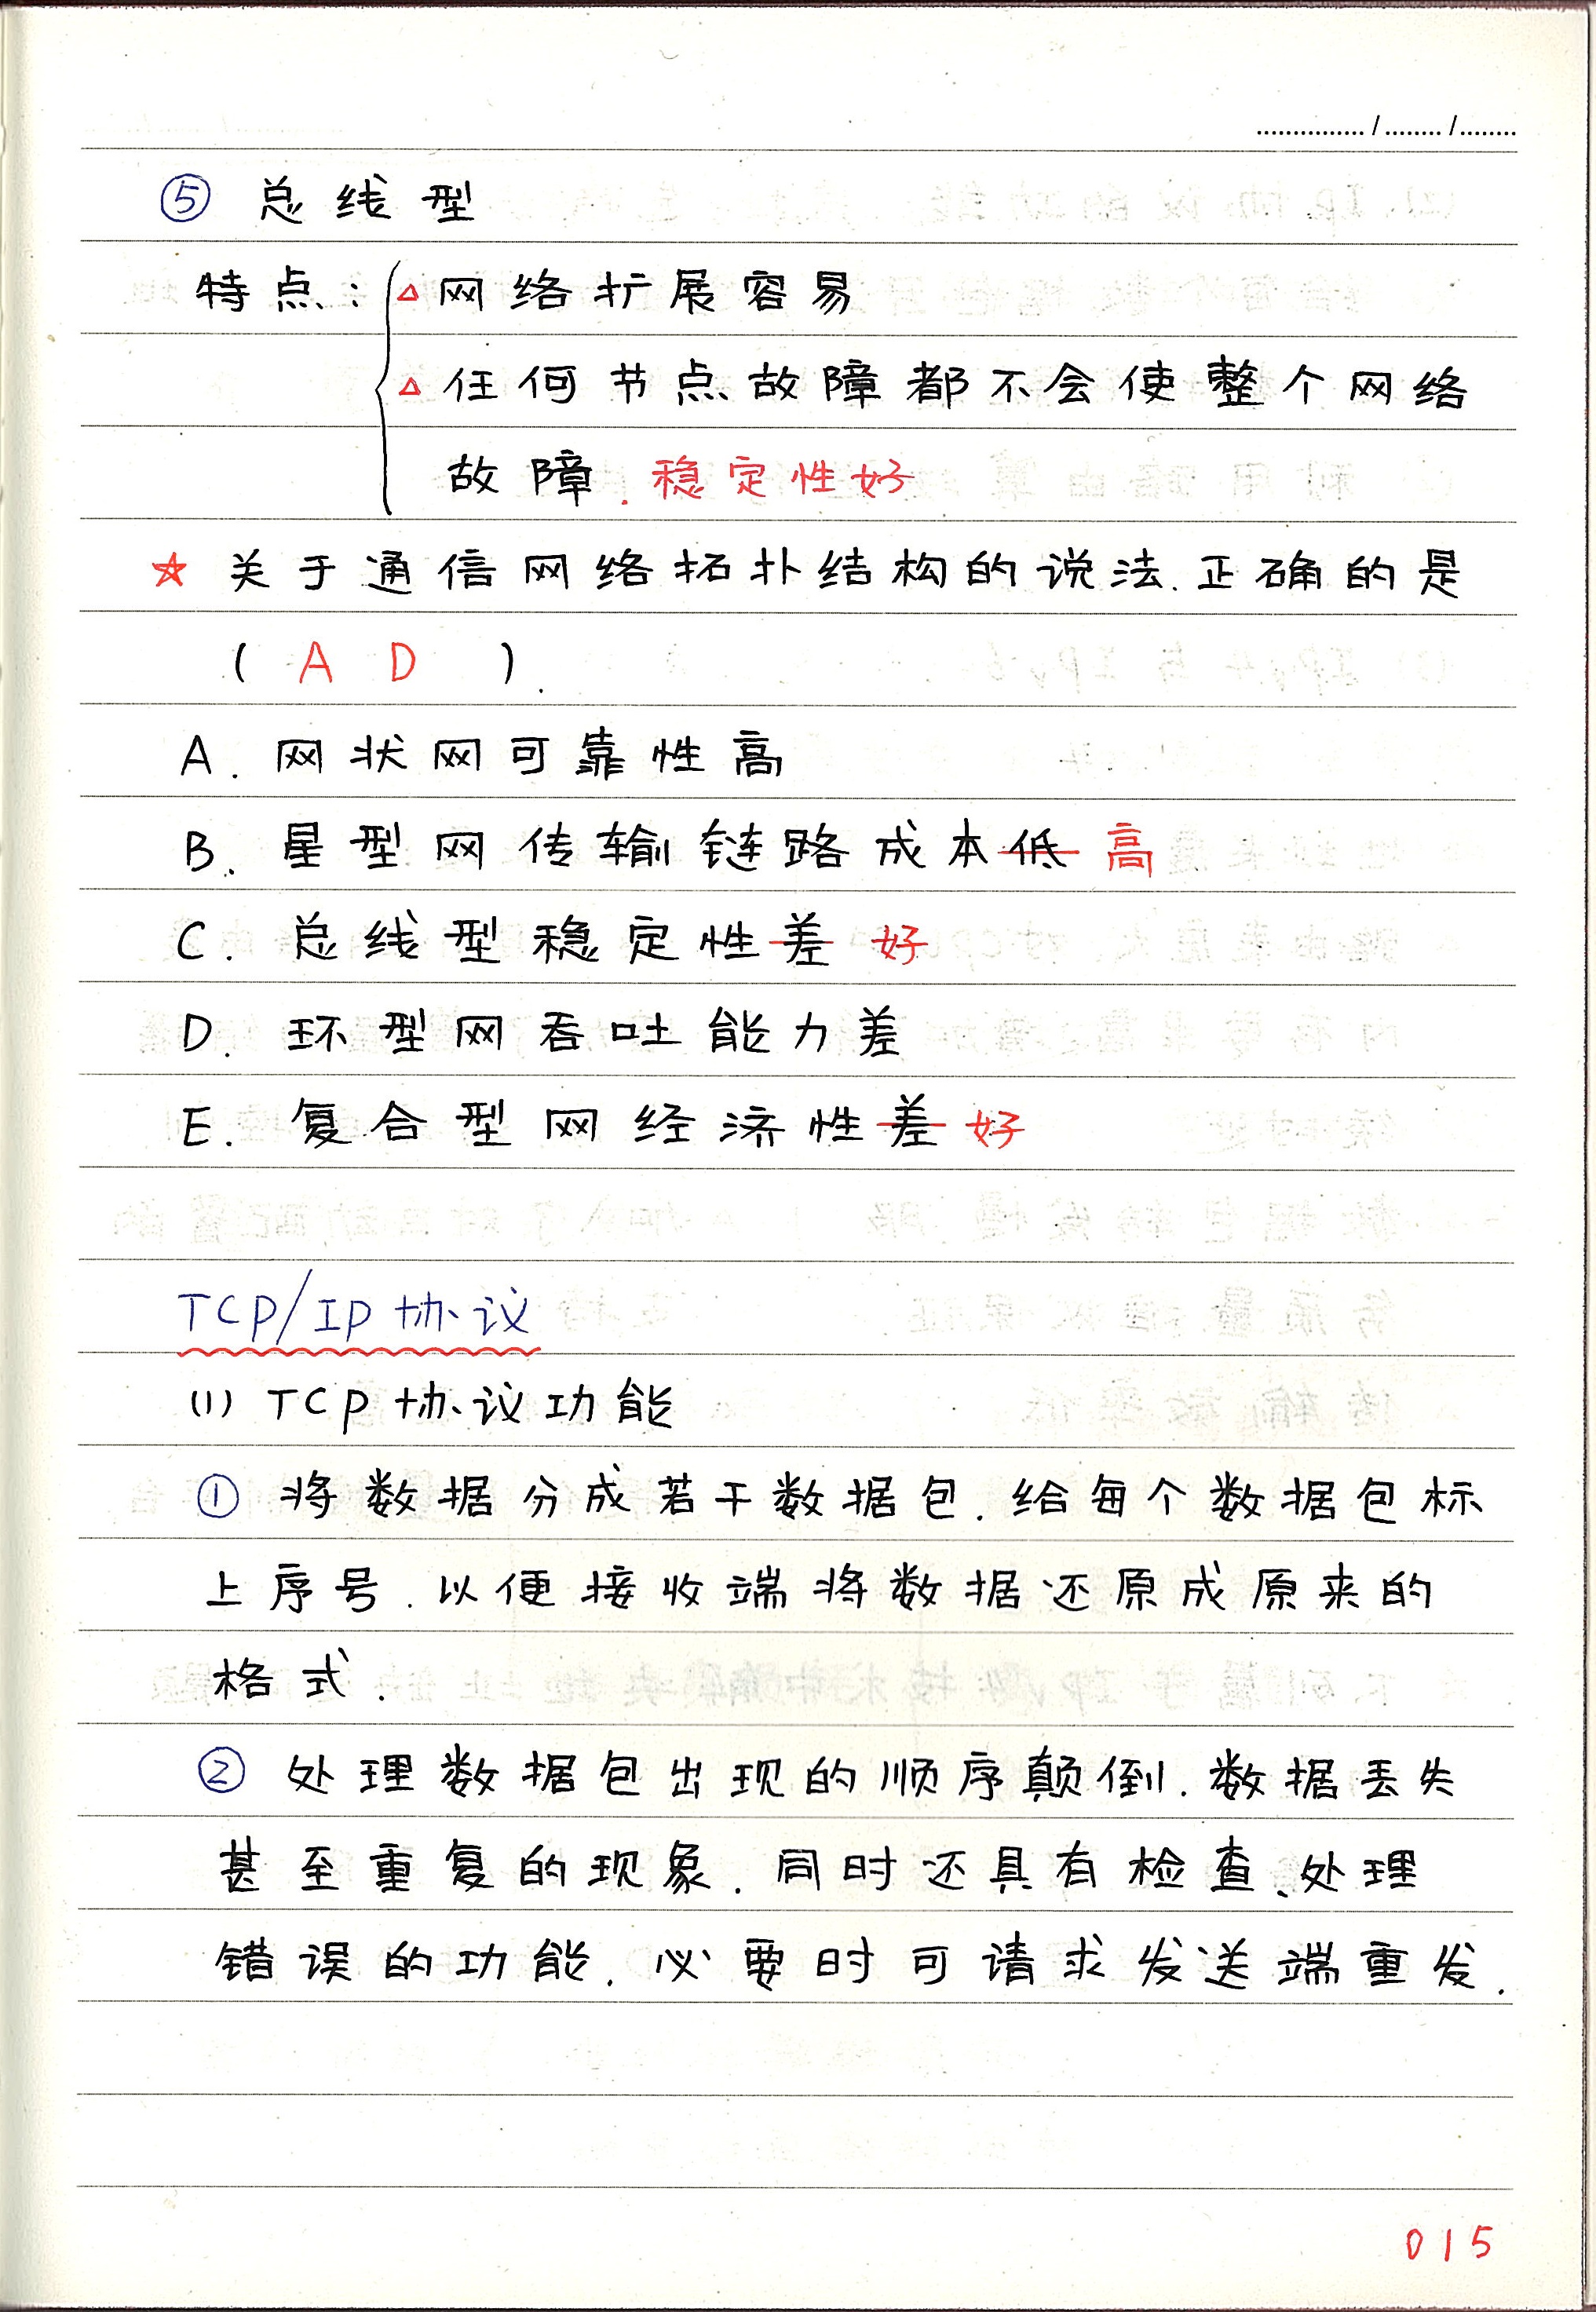 ⑤ 总线型
特点: △网络扩展容易
△任何节点故障都不会使整个网络
故障.稳定性好
☆ 关于通信网络拓扑结构的说法.正确的是
( A D ).
A. 网状网可靠性高
B. 星型网传输链路成本低 高
C. 总线型稳定性差 好
D. 环型网吞吐能力差
E. 复合型网经济性差 好
TCP/IP协议
(1) TCP协议功能
① 将数据分成若干数据包.给每个数据包标
上序号.以便接收端将数据还原成原来的
格式.
② 处理数据包出现的顺序颠倒.数据丢失
甚至重复的现象.同时还具有检查、处理
错误的功能.必要时可请求发送端重发.
015